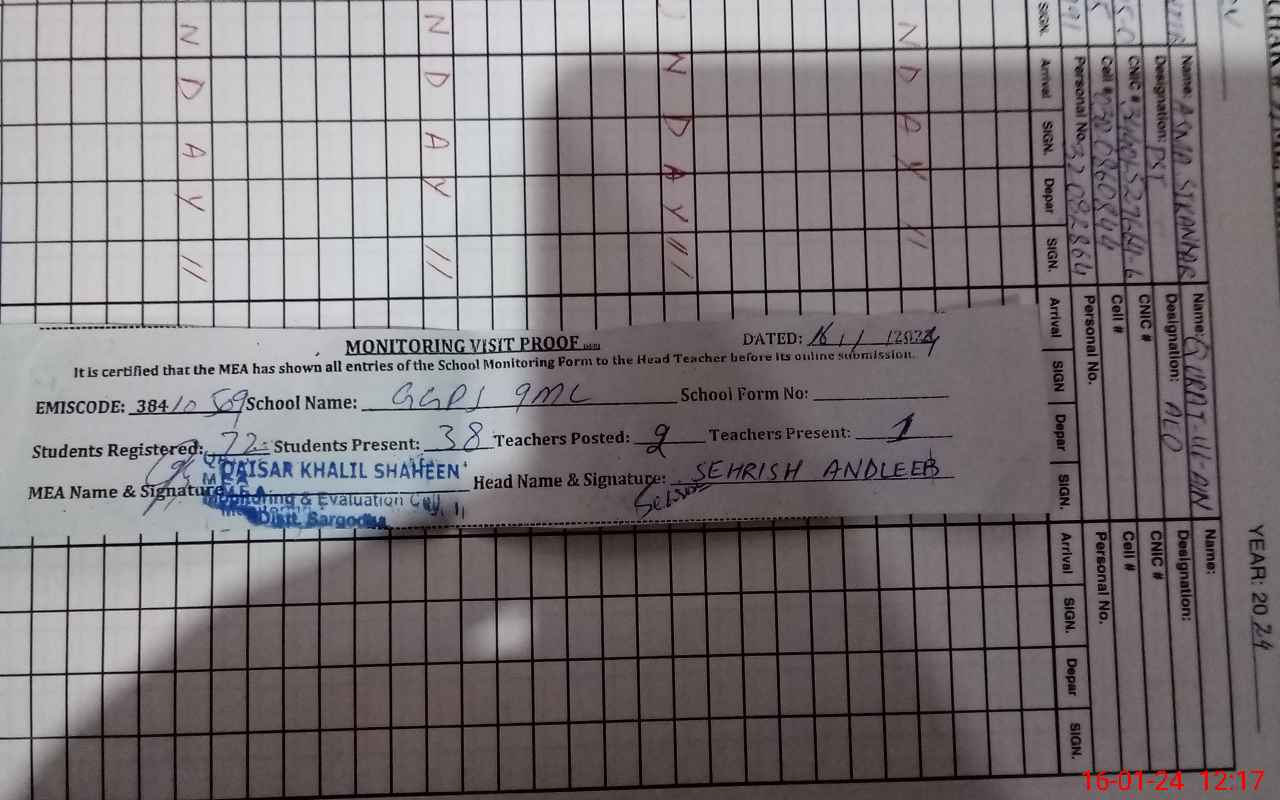 MONITORING VISIT PROOF
DATED: 16/1/2024
It is certified that the MEA has shown all entries of the School Monitoring Form to the Head Teacher before its online submission.
EMISCODE: 384/0 509 School Name: GGPS 9ML School Form No:
Students Registered: 72 Students Present: 38 Teachers Posted: 2 Teachers Present: 1
MEA Name & Signature Head Name & Signature: SEHRISH ANDLEEB
QAISAR KHALIL SHAHEEN
MEA
Monitoring & Evaluation Cell
Distt. Sargodha
YEAR: 2024
SIGN.
Name:
Designation: PST
CNIC #
Cell #
Personal No.
Arrival SIGN. Depar SIGN.
Name: QURAT-UL-AIN
Designation: AEO
CNIC #
Cell #
Personal No.
Arrival SIGN Depar SIGN.
Name:
Designation:
CNIC #
Cell #
Personal No.
Arrival SIGN. Depar SIGN.
N D A Y !!
N D A Y !!
N D A Y !!!
N D A Y !!
16-01-24 12:17